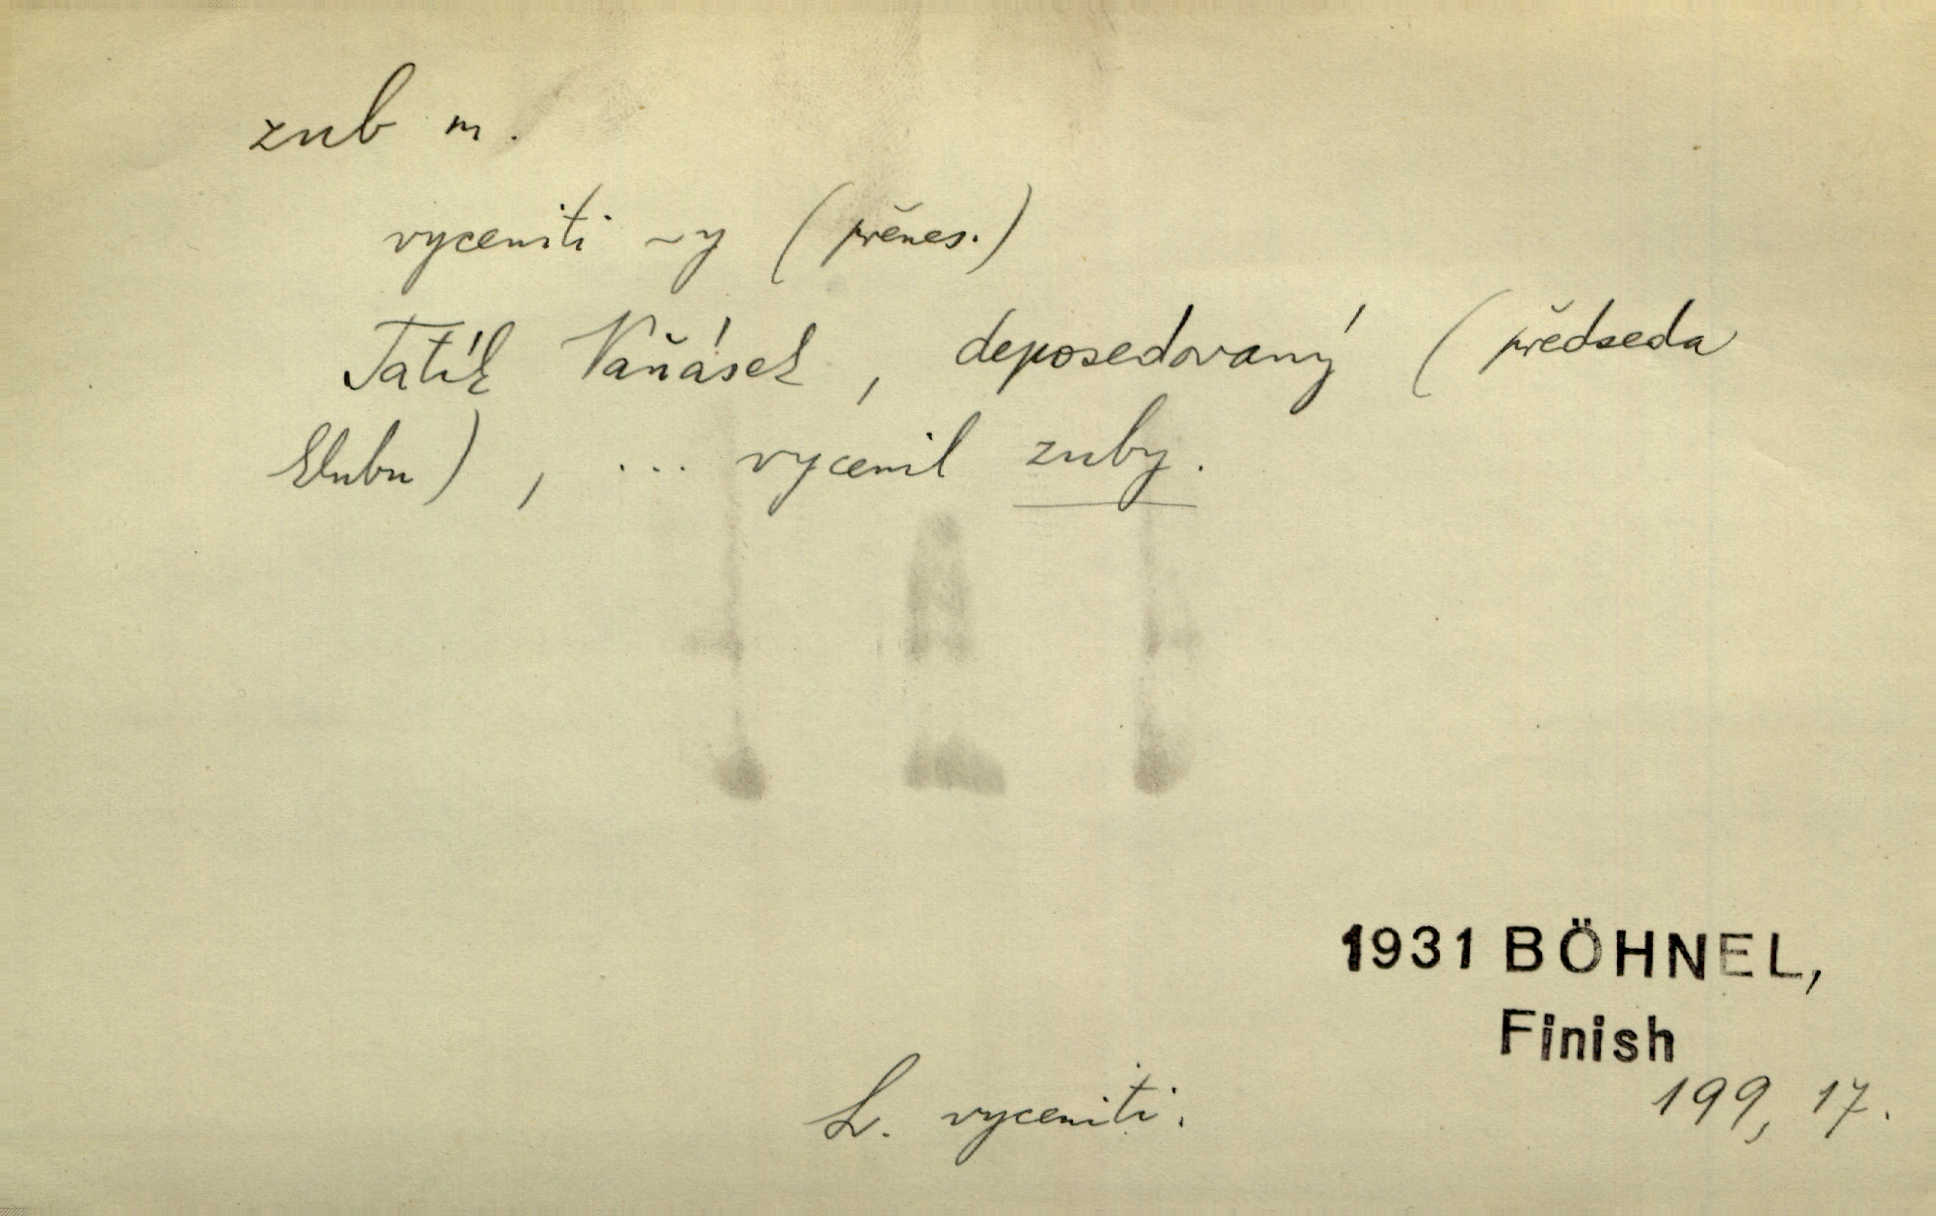 zub m.
vyceniti ~y (přenes.)
Tatík Vaňásek, deposedovaný (předseda
klubu), ... vycenil zuby.
1931 BÖHNEL,
Finish
199, 17.
L. vyceniti.